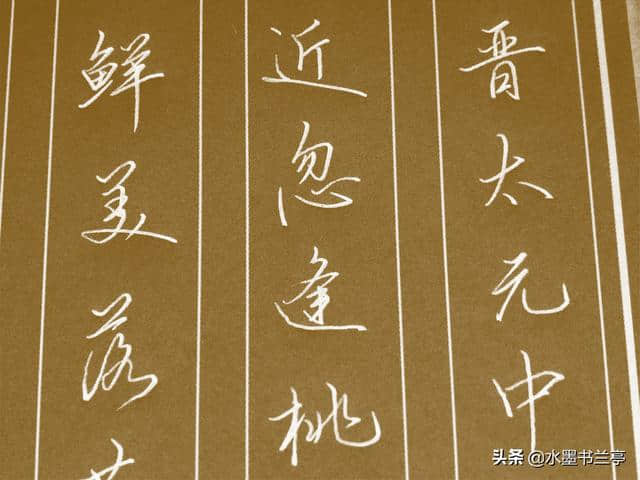 晋太元中
近忽逢桃
鲜美落英
头条 @水墨书兰亭